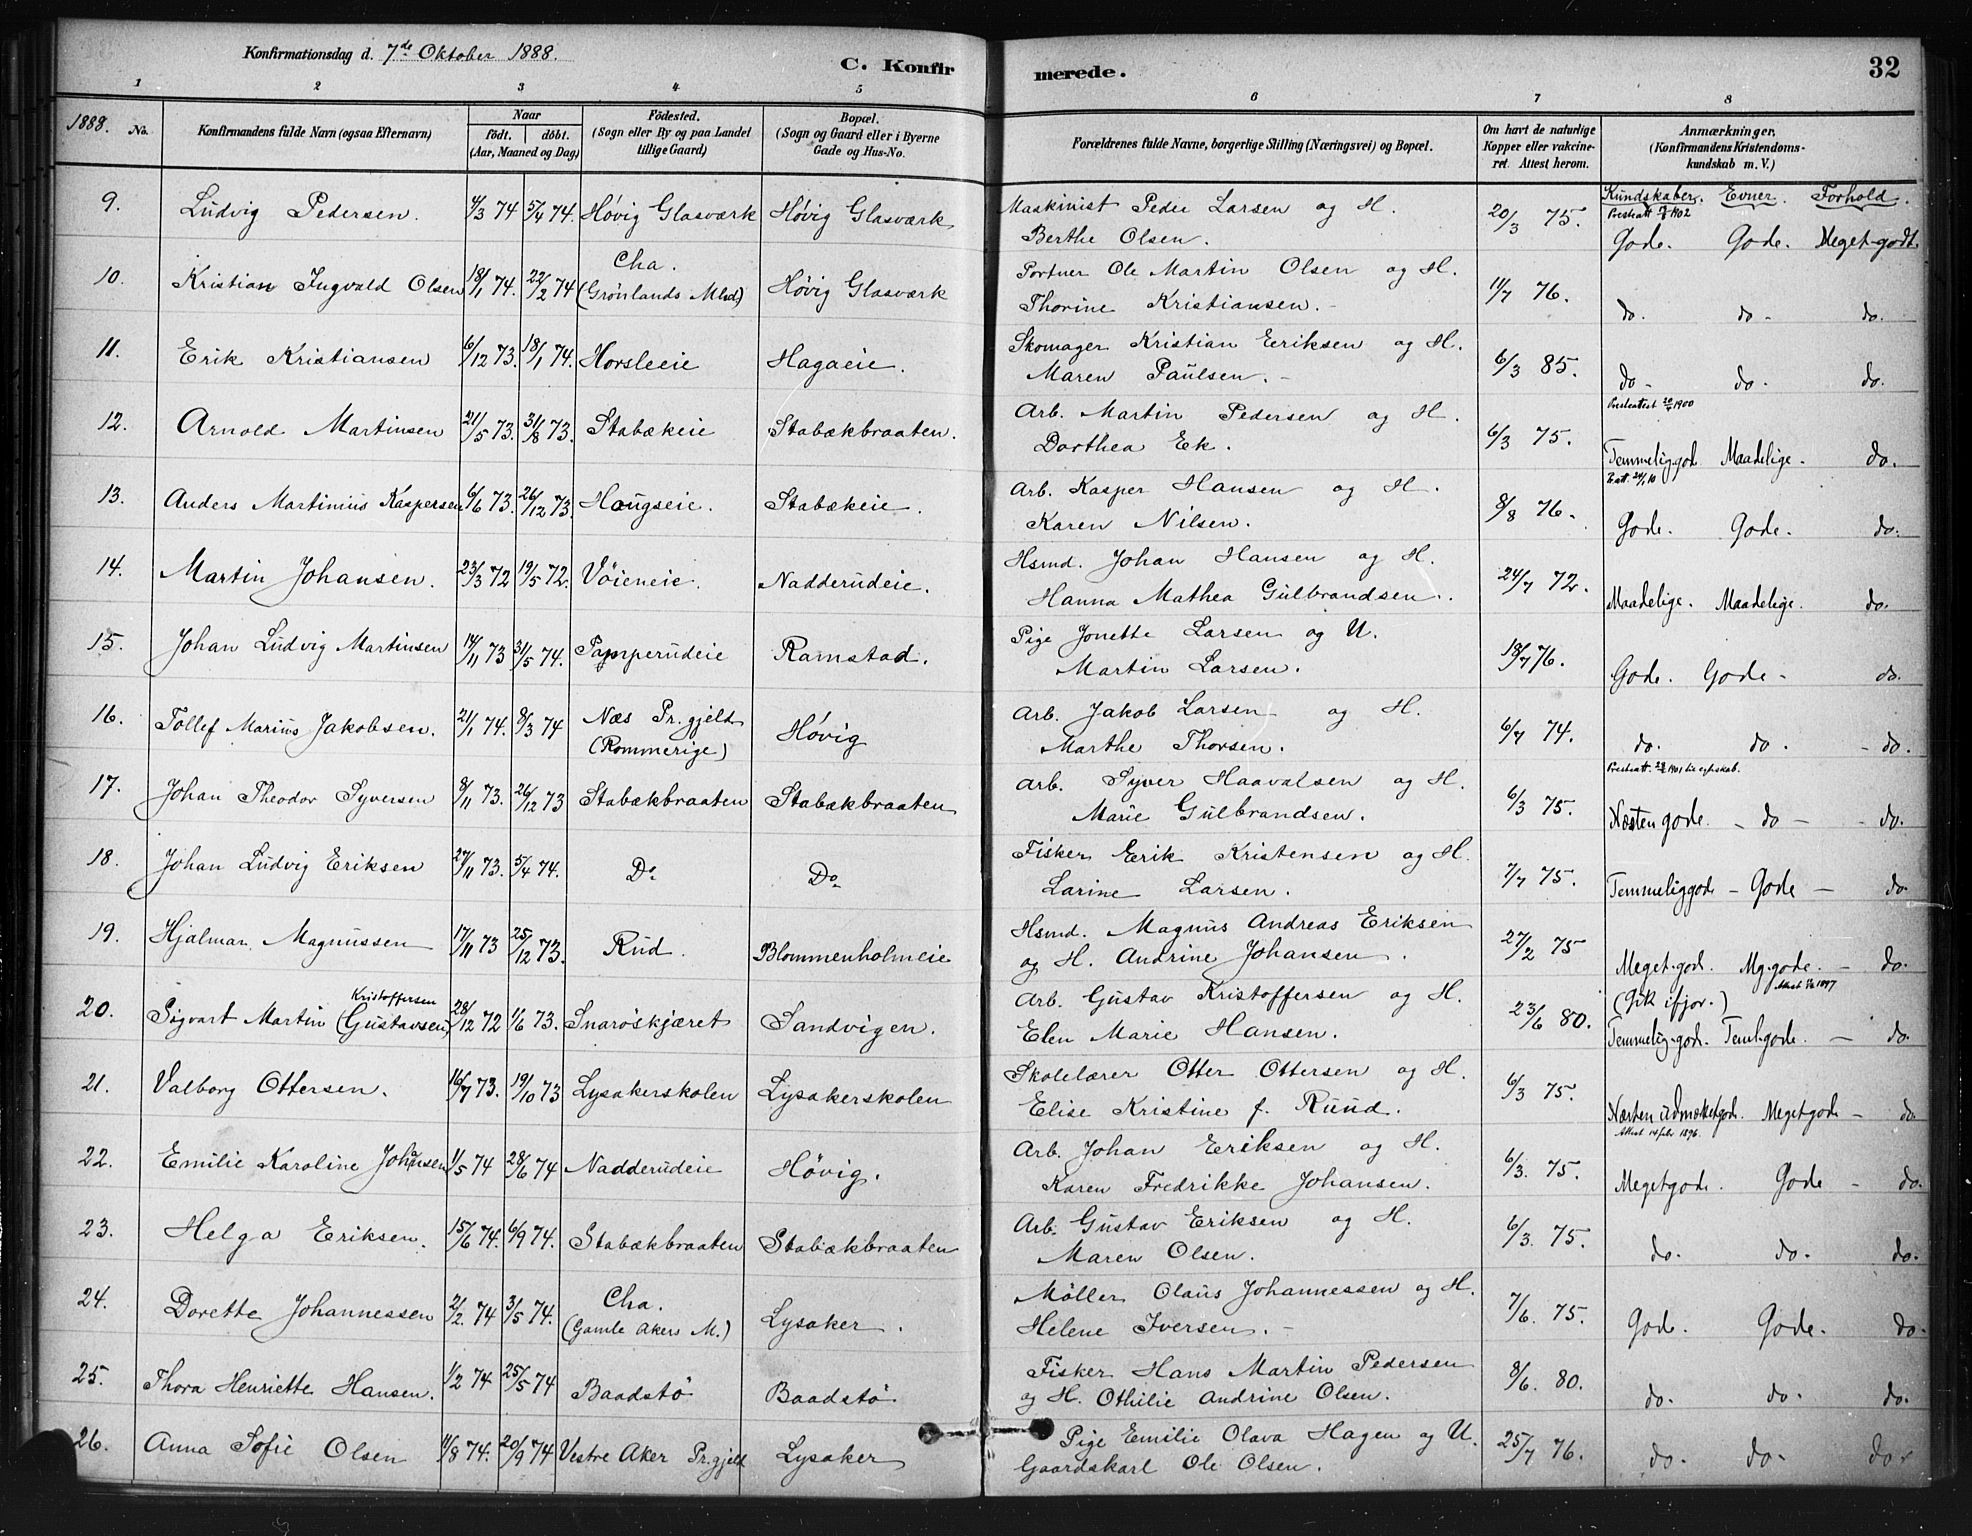 Konfirmationsdag d. 7de Oktober 1888.
C. Konfirmerede.
32
1 2 3 4 5 6 7 8
1888. No.
Konfirmandens fulde Navn (ogsaa Efternavn)
Naar
födt. döbt.
(Aar, Maaned og Dag)
Födested.
(Sogn eller By og paa Landet
tillige Gaard)
Bopæl.
(Sogn og Gaard eller i Byerne
Gade og Hus-No.
Forældrenes fulde Navne, borgerlige Stilling (Næringsvei) og Bopæl.
Om havt de naturlige
Kopper eller vakcine-
ret. Attest herom.
Anmærkninger.
(Konfirmandens Kristendoms-
kundskab m. V.)
Kundskaber. Evner. Forhold.
9. Ludvig Pedersen. 4/3 74 5/4 74. Høvig Glasværk Høvig Glasværk Maskinist Peder Larsen og H. 20/3 75.
Berthe Olsen. Gode. Gode. Meget godt.
10. Kristian Ingvald Olsen 18/1 74. 22/2 74 Cha. (Grönlands Mhd) Høvig Glasværk Portner Ole Martin Olsen og H. 11/7 76.
Thorine Kristiansen. do. do. do.
11. Erik Kristiansen 6/12 73. 18/1 74. Horsleeie Hagaeie. Skomager Kristian Eriksen og H. 6/3 85.
Maren Paulsen. do. do. do.
12. Arnold Martinsen 21/5 73. 31/8 73. Stabækeie Stabækbraaten. Arb. Martin Pedersen og H. 6/3 75. Presteattest 1900
Dorthea Ek. Temmelig god Maadelige. do.
13. Anders Martinius Kaspersen 6/6 73. 26/12 73. Haugseie. Stabækeie. Arb. Kasper Hansen og H. 8/8 76.
Karen Nilsen. Gode. Gode. do.
14. Martin Johansen. 23/3 72 19/5 72. Vöieneie. Nadderudeie. Hsmd. Johan Hansen og H. 24/7 72.
Hanna Mathea Gulbrandsen. Maadelige. Maadelige. do.
15. Johan Ludvig Martinsen 14/11 73 31/5 74. Pamperudeie Ramstad. Pige Jonette Larsen og U. 18/7 76.
Martin Larsen. Gode. Gode. do.
16. Tollef Marius Jakobsen. 21/1 74. 8/3 74 Næs Pr.gjeld (Rommerige) Høvig Arb. Jakob Larsen og H. 6/7 74.
Marthe Thorsen. do. do. do.
17. Johan Theodor Syversen 8/11 73. 26/12 73 Stabækbraaten Stabækbraaten Arb. Syver Haavalsen og H. 6/3 75.
Marie Gulbrandsen. Næsten gode. do do.
18. Johan Ludvig Eriksen 27/11 73. 5/4 74. Do Do Fisker Erik Kristensen og H. 7/7 75.
Larine Larsen. Temmelig gode Gode do.
19. Hjalmar Magnussen 17/11 73 25/12 73. Rud. Blommenholmeie Hsmd. Magnus Andreas Eriksen 27/2 75
og H. Andrine Johansen. Meget god. Mg. gode. do.
20. Sigvart Martin (Gustavsen) Kristoffersen 28/12 72 1/6 73. Snaröskjæret Sandvigen. Arb. Gustav Kristoffersen og H. 23/6 80. (Gik ifjor.)
Elen Marie Hansen. Temmelig god. Teml. gode. do.
21. Valborg Ottersen. 16/7 73. 19/10 73 Lysakerskolen Lysakerskolen Skolelærer Otter Ottersen og H. 6/3 75.
Elise Kristine f. Ruud. Næsten udmærket god. Meget gode do
Attest 14 febr 1896.
22. Emilie Karoline Johansen 1/5 74 28/6 74 Nadderudeie Høvig. Arb. Johan Eriksen og H. 6/3. 75.
Karen Fredrikke Johansen. Meget gode. Gode do.
23. Helga Eriksen. 15/6 74. 6/9 74. Stabækbraaten Stabækbraaten Arb. Gustav Eriksen og H. 6/3. 75.
Maren Olsen. do. do. do.
24. Dorette Johannessen 2/2. 74 3/5 74. Cha. (Gamle Akers M.) Lysaker. Möller Olaus Johannessen og H. 7/6. 75.
Helene Iversen. God. Gode. do.
25. Thora Henriette Hansen. 1/2 74 25/5 74 Baadstö Baadstö. Fisker Hans Martin Pedersen 8/6. 80.
og H. Othilie Andrine Olsen. do. do. do.
26. Anna Sofie Olsen 11/8 74. 20/9 74 Vestre Aker Pr.gjeld Lysaker Pige Emilie Olava Hagen og U. 25/7 76.
Gaardskarl Ole Olsen. do. do. do.